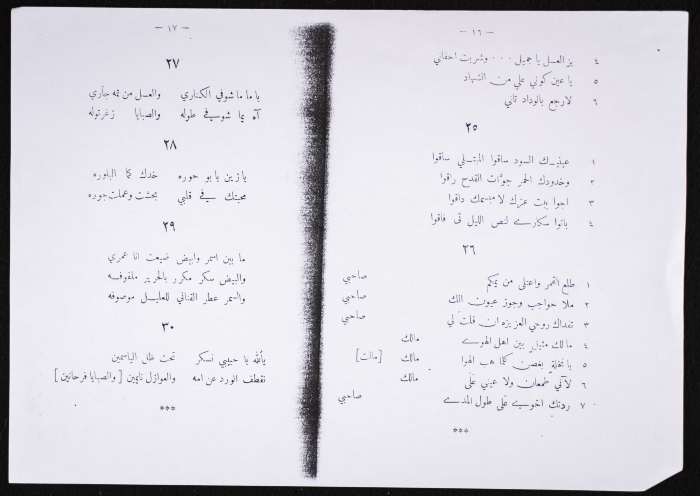 — ١٦ —
٤ بز العسل يا جميل ٠٠٠ وشربت احقاني
٥ يا عين كوني علي من الشهاد
٦ لارجع بالوداد تاني
٢٥
١ عينيك السود ساقوا المبتلي ساقوا
٢ وخدودك الحمر جوات القدح راقوا
٣ اجوا بيت عزك لا مبسمك داقوا
٤ باتوا سكارى لنص الليل تى فاقوا
٢٦
١ طلع القمر واعتلى من يمكم صاحبي
٢ ملا حواجب وجوز عيون الك صاحبي
٣ تفداك روحي العزيزه ان قلت لي صاحبي
٤ مالك مثيل بين اهل الهوى مالك
٥ يا نخلة بغصن كلما هب الهوا مالك [مالت]
٦ لآني طمعان ولا عيني على مالك
٧ ردتك اخوي على طول المدى صاحبي
***
— ١٧ —
٢٧
يا ما ما شوفي الكناري والعسل من تمه جاري
آه يما شوفي طوله والصبايا زغرتوله
٢٨
يا زين يا بو حوره خدك كما البلوره
محبتك في قلبي بحشت وعملت جوره
٢٩
ما بين اسمر وابيض ضيعت انا عمري
والبيض سكر مكرر بالحرير ملفوفه
والسمر عطر القناني للعليل موصوفه
٣٠
بالله يا حبيبي نسكر تحت ظل الياسمين
نقطف الورد عن امه والعوازل نايمين [والصبايا فرحانين]
***